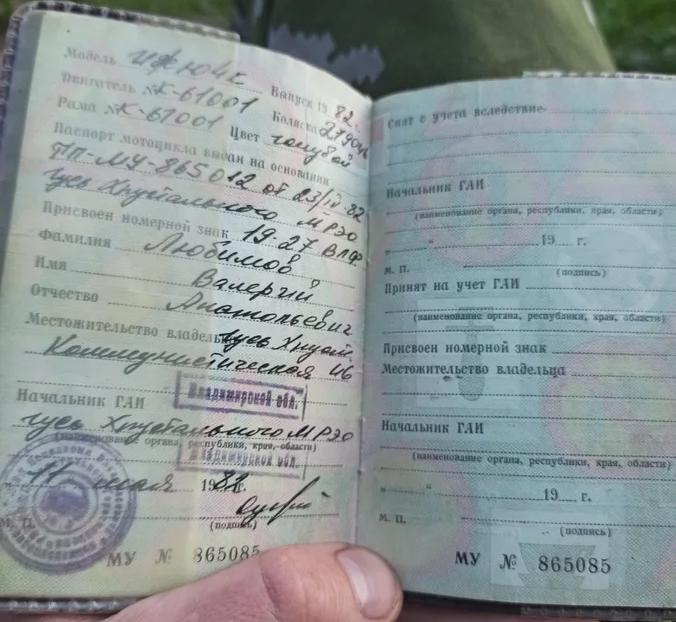 Модель ИЖЮ4К Выпуск 1982
Двигатель №К-61001 Коляска 279046
Рама №К-61001 Цвет голубой
Паспорт мотоцикла выдан на основании
ТП-МУ-865012 от 23/IV-82
Гусь Хрустального МРЭО
Присвоен номерной знак 19-27 ВЛФ
Фамилия Любимов
Имя Валерий
Отчество Анатольевич
Местожительство владельца Гусь Хруст.
Коммунистическая
Владимирской обл.
Начальник ГАИ
Гусь Хрустального МРЭО
(наименование органа, республики, края, области)
Владимирской обл.
11 мая 198
М. П. (подпись)
МУ № 865085
Снят с учета вследствие
Начальник ГАИ
(наименование органа, республики, края, области)
„ “ 19 г.
М. П. (подпись)
Принят на учет ГАИ
(наименование органа, республики, края, области)
Присвоен номерной знак
Местожительство владельца
Начальник ГАИ
(наименование органа, республики, края, области)
„ “ 19 г.
М. П. (подпись)
МУ № 865085